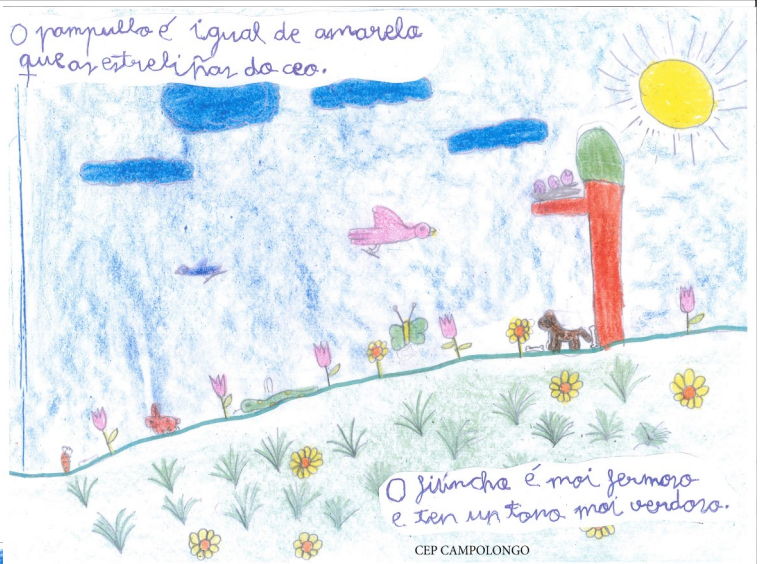 O pampullo é igual de amarelo
que as estreliñas do ceo.
O fiúncho é moi fermoso
e ten un tono moi verdoso.
CEP CAMPOLONGO